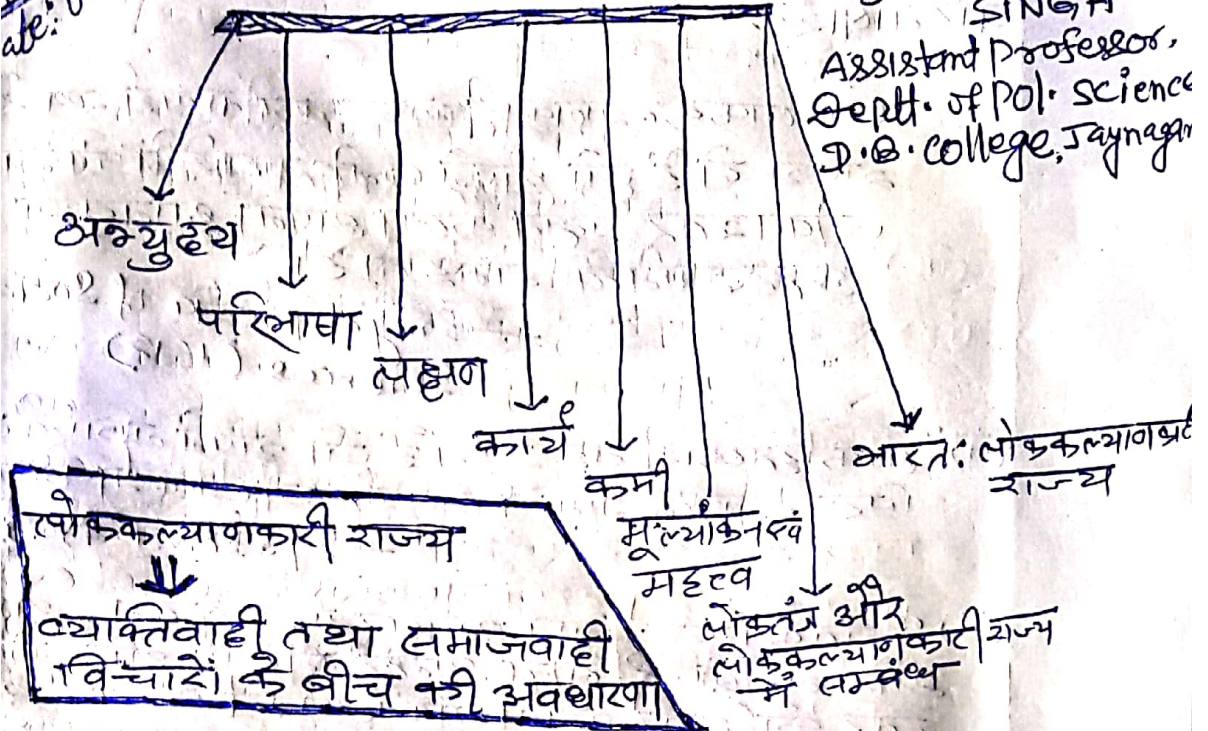 ate:
SINGH
Assistant Professor,
Deptt. of Pol. Science
D.B. College, Jaynagar
अभ्युदय
परिभाषा
लक्षण
कार्य
कमी
मूल्यांकन एवं
महत्त्व
लोकतंत्र और
लोककल्याणकारी राज्य
में सम्बंध
भारत: लोककल्याणका
राज्य
लोककल्याणकारी राज्य
व्यक्तिवादी तथा समाजवादी
विचारों के बीच की अवधारणा